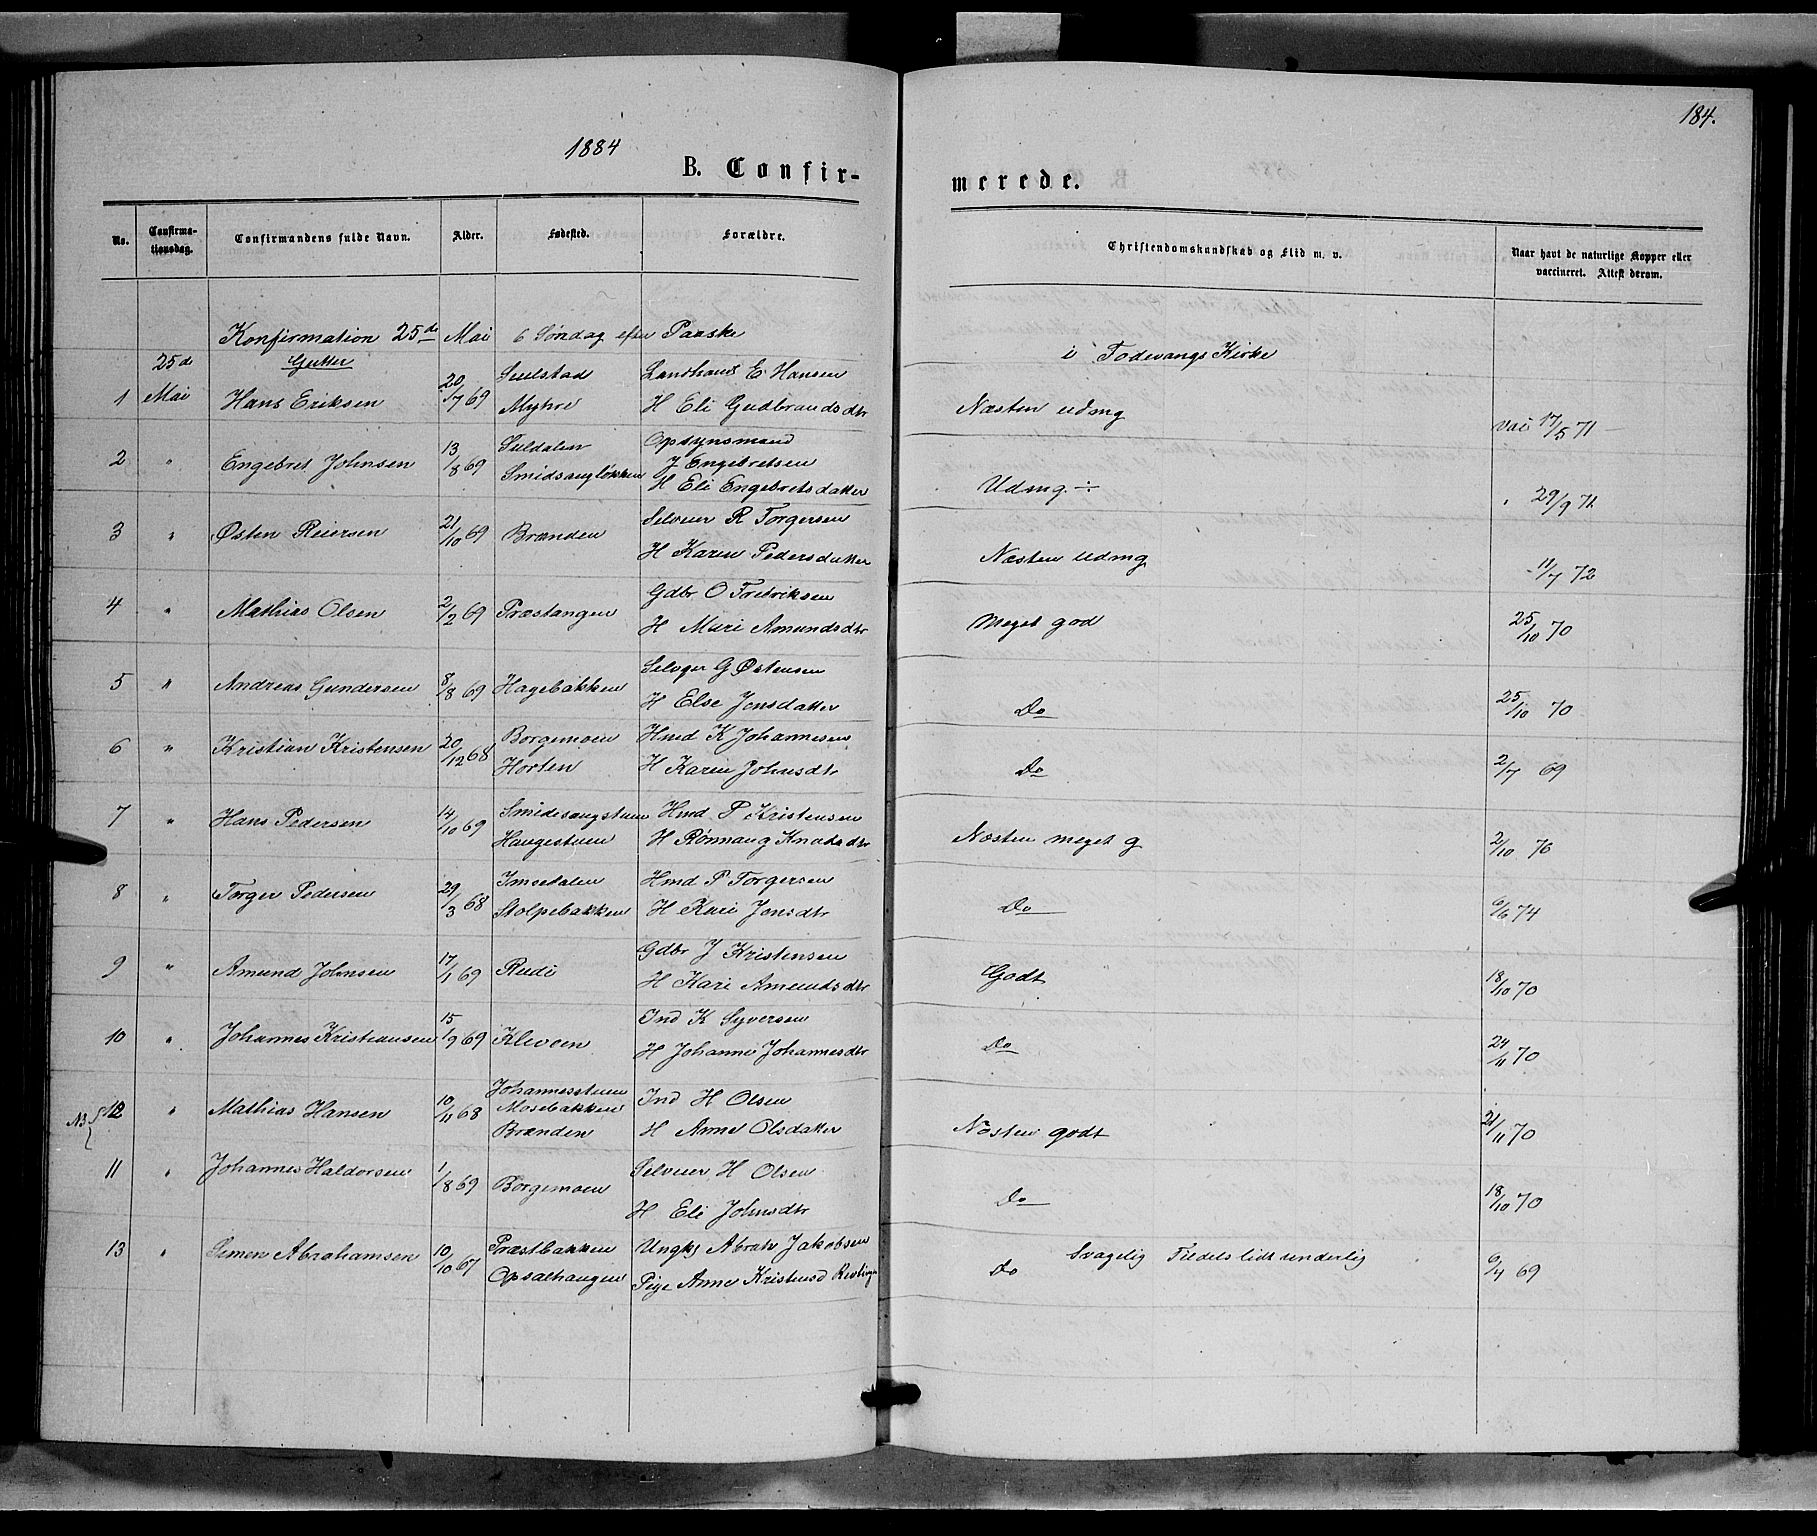 184.
1884
B. Confir-
merede.
No. Confirma-tionsdag. Confirmandens fulde Navn. Alder. Fødested. Forældre. Christendomskundskab og Flid m. v. Naar havt de naturlige Kopper eller vaccineret. Attest derom.
Konfirmation 25de Mai 6 Søndag efter Paaske
i Fodevangs Kirke
25d Gutter
1 Mai Hans Eriksen 20/7 69 Sulstad Myhre Landhand E. Hansen H Eli Gudbrandsdtr Næsten udmg vac 17/5 71
2 " Engebret Johnsen 13/8 69 Suldalen Smidsangløkken Opsynsmand J Engebretsen H Eli Engebretsdatter Udmg ÷ " 29/9 71
3 " Østen Reiersen 21/10 69 Brænden Selveier R Torgersen H Karen Pedersdatter Næsten udmg 11/7 72
4 " Mathias Olsen 2/2 69 Præstangen Gdbr O Fredriksen H Mari Amundsdtr Meget god 25/10 70
5 " Andreas Gundersen 8/8 69 Hagebakken Selvger G Østensen H Else Jonsdatter Do 25/10 70
6 " Kristian Kristensen 20/12 68 Borgemoen Horten Hmd K Johannesen H Karen Johnsdtr Do 2/7 69
7 " Hans Pedersen 14/10 69 Smidesangstuen Haugestuen Hmd P Kristensen H Rønnaug Knutsdtr Næsten meget g 2/10 76
8 " Torger Pedersen 29/3 68 Imsdalen Stolpebakken Hmd P Torgersen H Kari Jonsdtr Do 6/6 74
9 " Amund Johnsen 17/1 69 Rudi Gdbr J Kristensen H Kari Amundsdtr Godt 18/10 70
10 " Johannes Kristiansen 15/9 69 Klevoen Ind K Syversen H Johanne Johannesdtr Do 24/11 70
NB 12 " Mathias Hansen 10/11 68 Johannesstuen Mosebakken Brænden Ind H Olsen H Anne Olsdatter Næsten godt 21/11 70
11 " Johannes Haldorsen 1/8 69 Borgemoen Selveier H Olsen H Eli Johnsdtr Do 18/10 70
13 " Simen Abrahamsen 10/10 67 Præstbakken Opsalhaugen Ungk Abrah Jakobsen Pige Anne Kristensd Do Svagelig Tildels lidt underlig 6/4 69